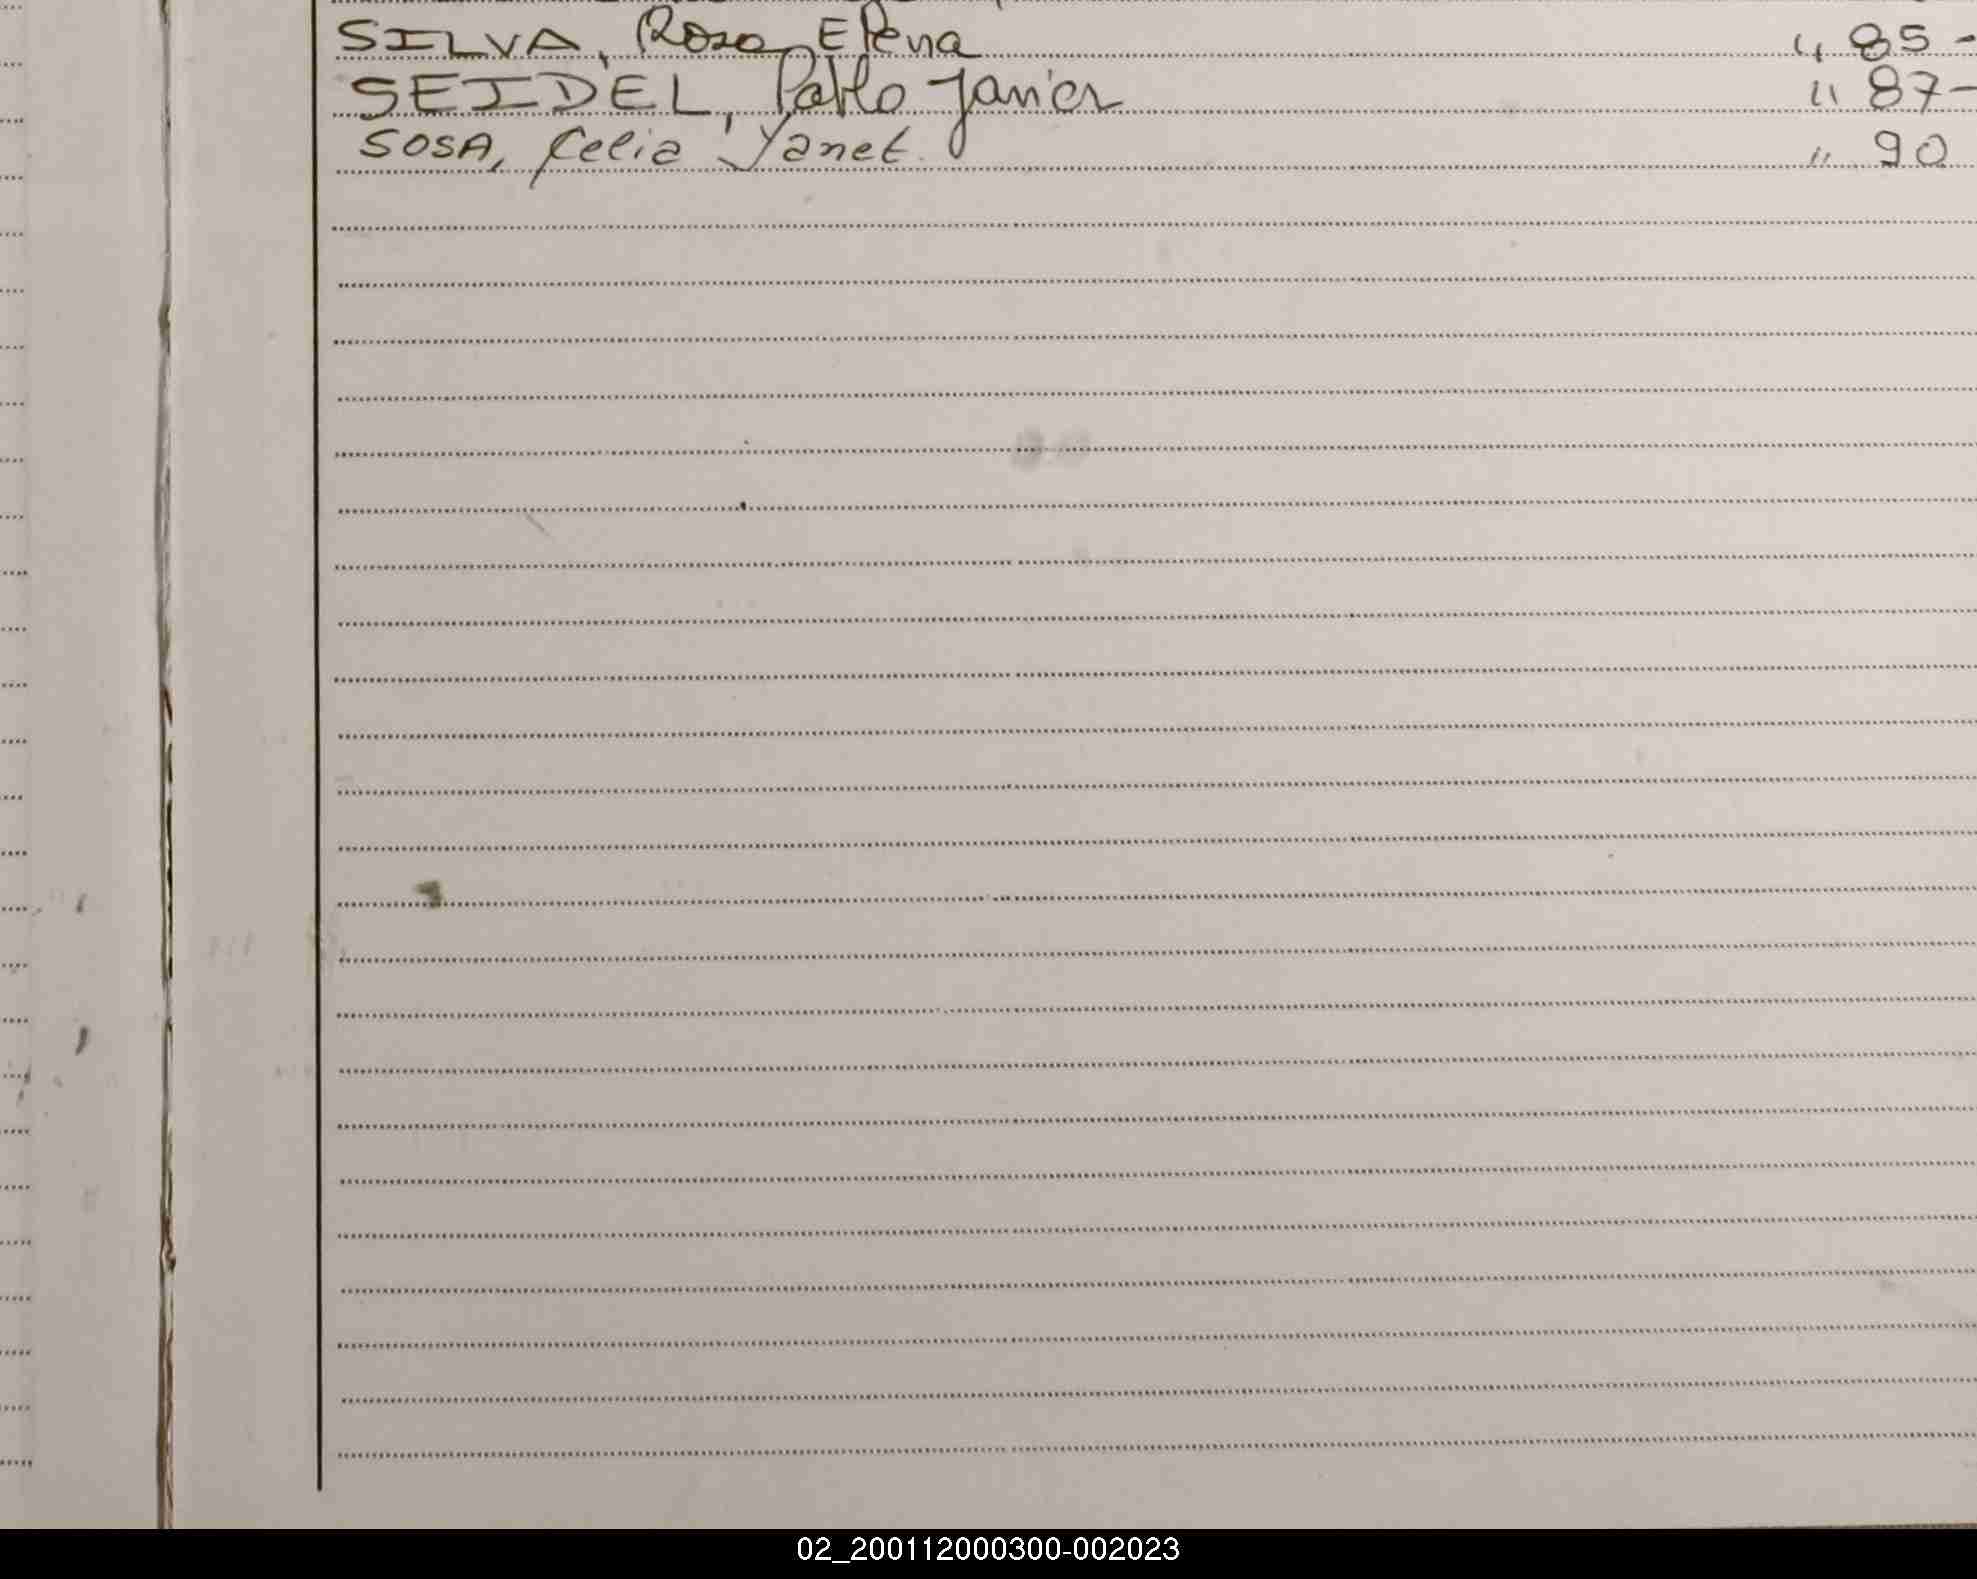 SILVA, Rosa Elena " 85 -
SEIDEL, Pablo Javier " 87 -
SOSA, Celia Yanet. " 90
02_200112000300-002023